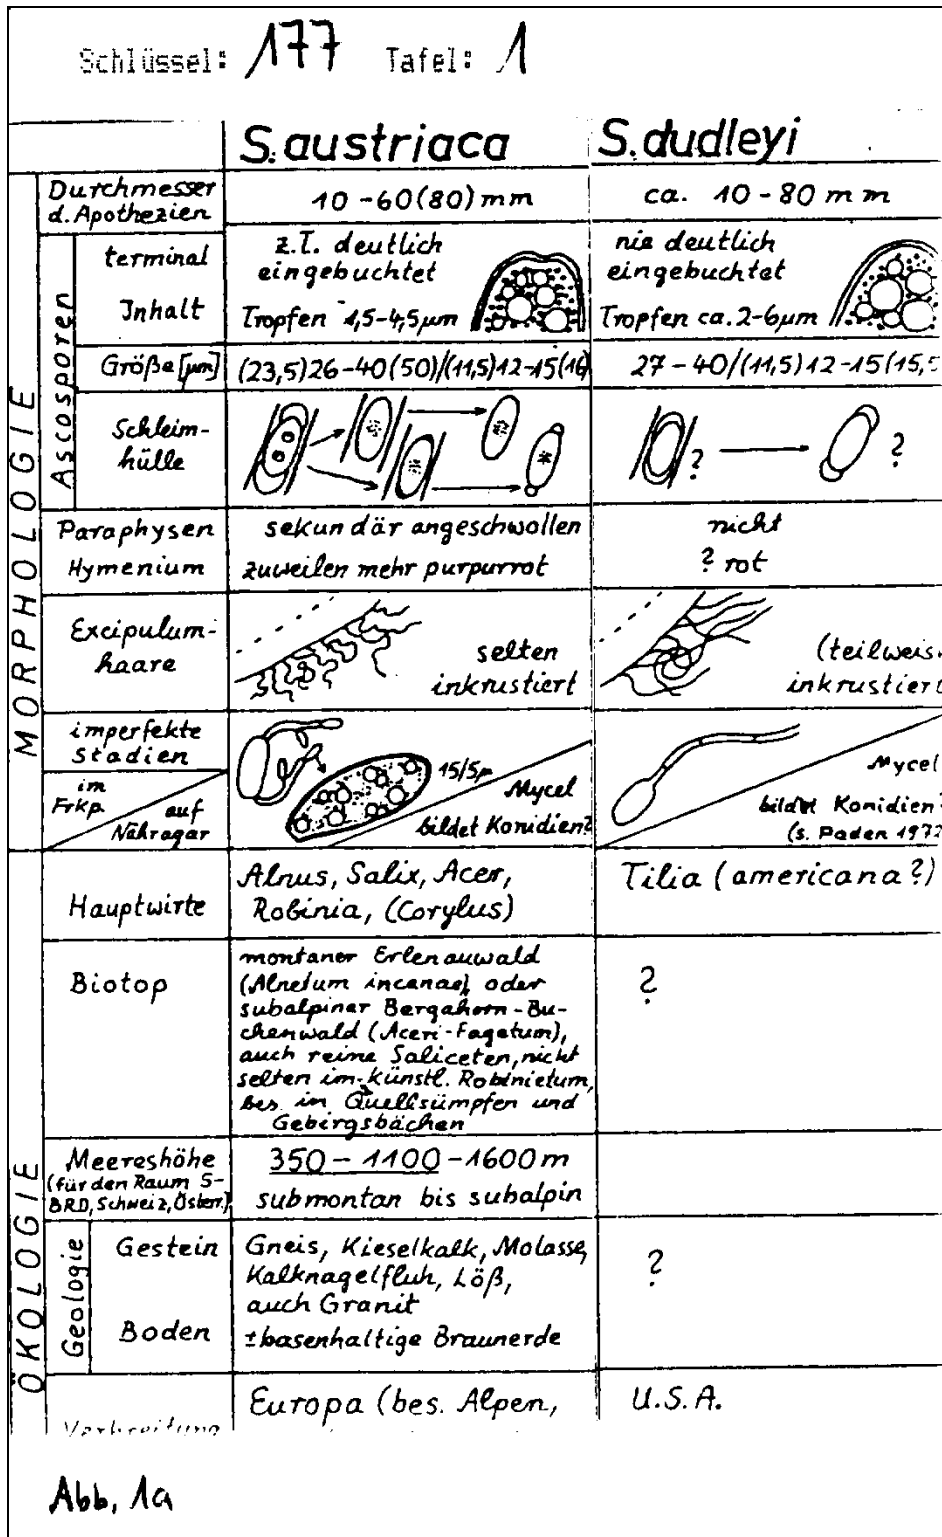 Schlüssel: 177 Tafel: 1
S. austriaca S. dudleyi
MORPHOLOGIE
Durchmesser
d. Apothezien
10-60(80) mm
ca. 10-80 mm
Ascosporen
terminal
z.T. deutlich
eingebuchtet
nie deutlich
eingebuchtet
Inhalt
Tropfen 1,5-4,5µm
Tropfen ca. 2-6µm
Größe [µm]
(23,5)26-40(50)/(11,5)12-15(16)
27-40/(11,5)12-15(15,5
Schleim-
hülle
? ?
Paraphysen
sekundär angeschwollen
nicht
Hymenium
zuweilen mehr purpurrot
? rot
Excipulum-
haare
selten
inkrustiert
(teilweis
inkrustiert
imperfekte
Stadien
im
Frkp.
auf
Nähragar
15/5µ
Mycel
bildet Konidien?
Mycel
bildet Konidien?
(s. Paden 1972
ÖKOLOGIE
Hauptwirte
Alnus, Salix, Acer,
Robinia, (Corylus)
Tilia (americana?)
Biotop
montaner Erlenauwald
(Alnetum incanae), oder
subalpiner Bergahorn-Bu-
chenwald (Aceri-Fagetum),
auch reine Saliceten, nicht
selten im künstl. Robinietum,
bes. in Quellsümpfen und
Gebirgsbächen
?
Meereshöhe
(für den Raum S-
BRD, Schweiz, Österr.)
350-1100-1600m
submontan bis subalpin
Geologie
Gestein
Gneis, Kieselkalk, Molasse,
Kalknagelfluh, Löß,
auch Granit
?
Boden
±basenhaltige Braunerde
Verbreitung
Europa (bes. Alpen,
U.S.A.
Abb. 1a